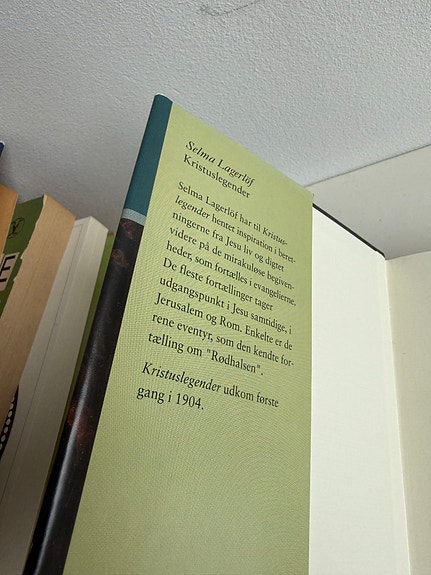 Selma Lagerlöf
Kristuslegender
Selma Lagerlöf har til Kristus-
legender hentet inspiration i beret-
ningerne fra Jesu liv og digtet
videre på de mirakuløse begiven-
heder, som fortælles i evangelierne.
De fleste fortællinger tager
udgangspunkt i Jesu samtidige, i
Jerusalem og Rom. Enkelte er de
rene eventyr, som den kendte for-
tælling om "Rødhalsen".
Kristuslegender udkom første
gang i 1904.